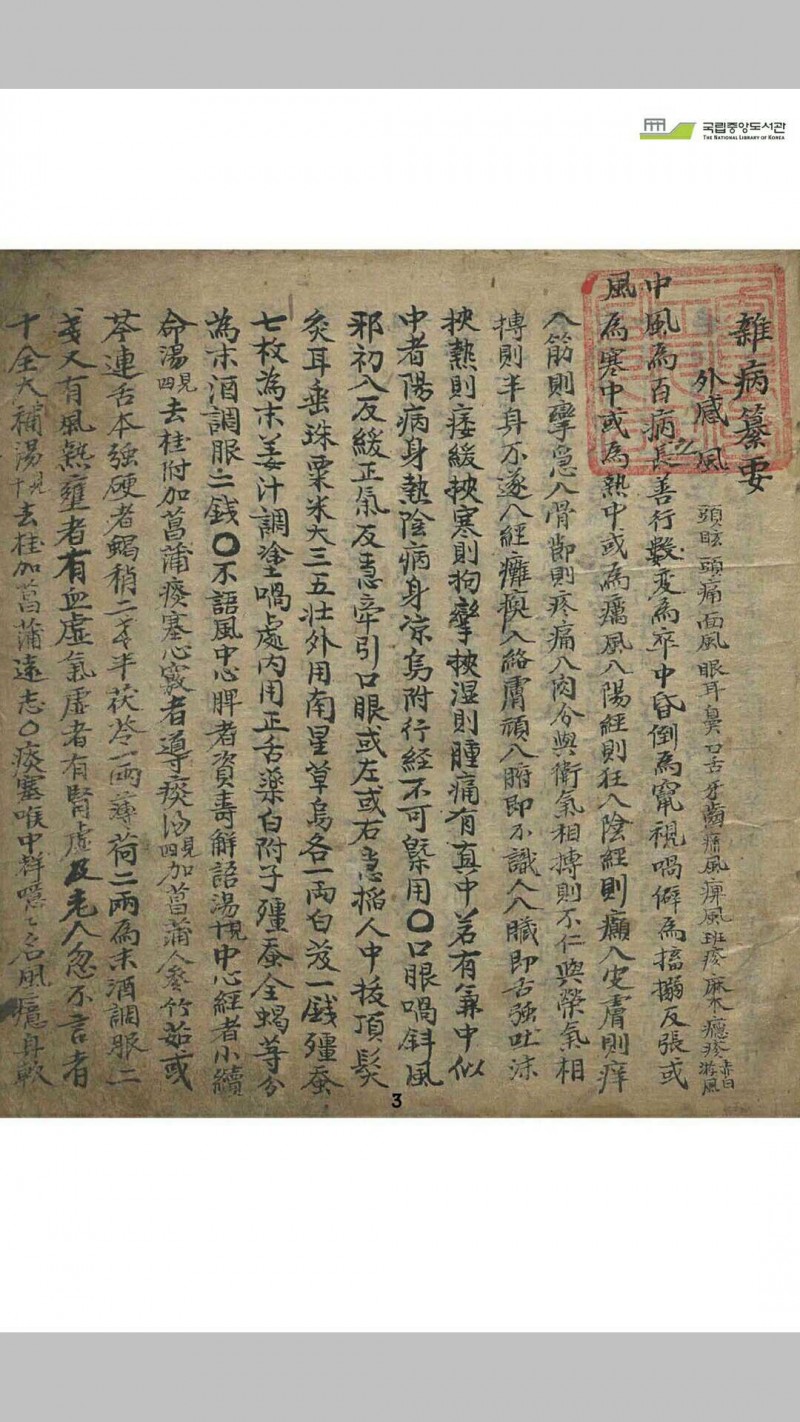 국립중앙도서관
THE NATIONAL LIBRARY OF KOREA
雜病纂要
外感 風 頭眩 頭痛 面風 眼耳鼻口舌牙齒痛風痹風斑疹麻木癮疹赤白游風
中風為百病之長善行數变為卒中昏倒為窜視喎僻為搐搦反張或
風為寒中或為熱中或為癘風入陽經則狂入陰經則癲入皮膚則痒
入筋則攣急入骨節則疼痛入肉分與衛氣相搏則不仁與榮氣相
搏則半身不遂入經癱瘓入絡膚頑入腑即不識人入臟即舌強吐沫
挾熱則痿緩挾寒則拘攣挾湿則腫痛有真中若有兼中似
中者陽病身熱陰病身凉烏附行经不可槩用〇口眼喎斜風
邪初入反緩正氣反急牽引口眼或左或右急掐人中拔頂髮
灸耳垂珠粟米大三五壮外用南星草烏各一両白芨一戔殭蚕
七枚為末姜汁調塗喎處内用正舌藥白附子殭蚕全蝎等分
為末酒調服二錢〇不語風中心脾者資壽解語湯 中心經者小續
命湯四見去桂附加菖蒲痰塞心竅者導痰汤四見加菖蒲人參竹茹或
芩連舌本強硬者蝎稍二戔半茯苓一両薄荷二両為末酒調服二
戔又有風熱壅者有血虛氣虛者有腎虛及老人忽不言者
十全大補湯 去桂加菖蒲遠志〇痰塞喉中 名風癔身軟
3